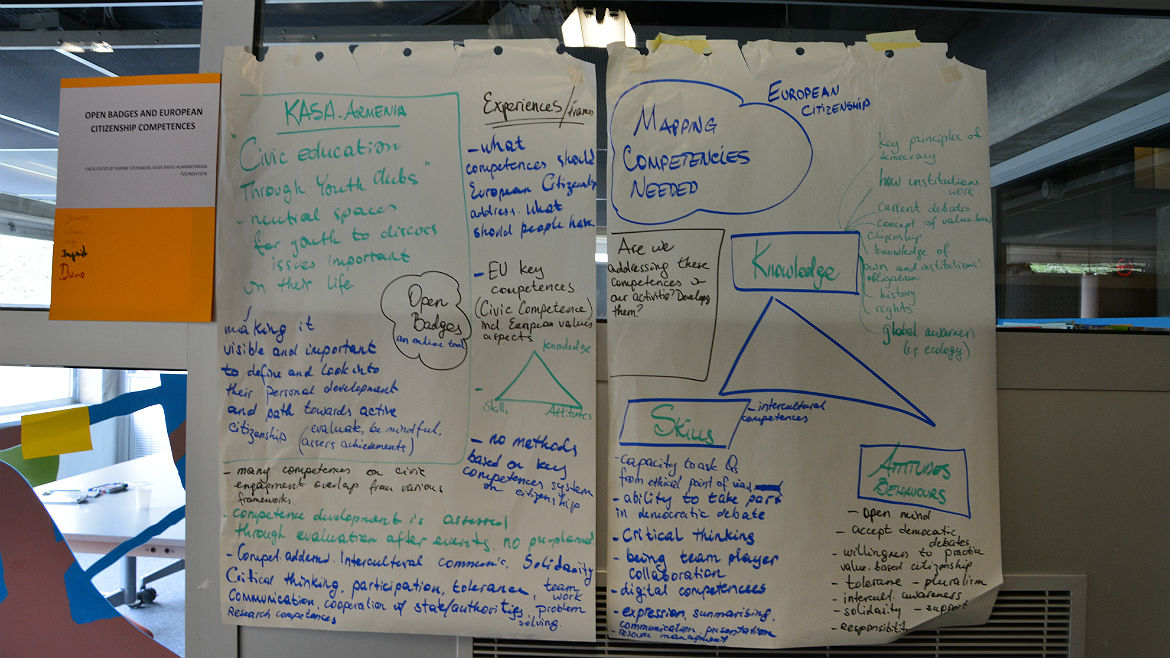 OPEN BADGES AND EUROPEAN
CITIZENSHIP COMPETENCES
FOUNDATION
Ingrid
KASA-ARMENIA
"Civic education
Through Youth Clubs"
- neutral spaces
for youth to discuss
issues important
in their life
Open
Badges
an online tool
making it
visible and important
to define and look into
their personal development
and path towards active
citizenship (evaluate, be mindful,
assess achievements)
- many competences on civic
engagement overlap from various
frameworks
- competence development is assessed
through evaluation after events, no pre-planned
- Compet. addressed. Intercultural communic. Solidarity
Critical thinking, participation, tolerance, team
work
Communication, cooperation w/ state/authorities, problem
solving.
Research competences
Experiences/frames
- what
competences should
European Citizenship
address. What
should people have
- EU key
competences
(Civic Competence)
incl European values
aspects
knowledge
Skills
Attitudes
- no methods
based on key
competences system
on citizenship
MAPPING
COMPETENCIES
NEEDED
EUROPEAN
CITIZENSHIP
Are we
addressing these
competences in
our activities? Develop
them?
Knowledge
key principles of
democracy
how institutions
work
current debates
- concept of value based
citizenship
knowledge of
own and institutions'
obligation
- history
- rights
global awareness
(e.g. ecology)
Skills
- intercultural
competences
- capacity to ask Qs
from ethical point of view
- ability to take part
in democratic debate
- Critical thinking
- being team player
collaboration
- digital competences
- expression, summarising,
communication, presentation
- resource management
ATTITUDES
BEHAVIOURS
- Open mind
- accept democratic
debates
- willingness to practice
value-based citizenship
- tolerance - pluralism
- intercult. awareness
- solidarity - support
- responsibilit